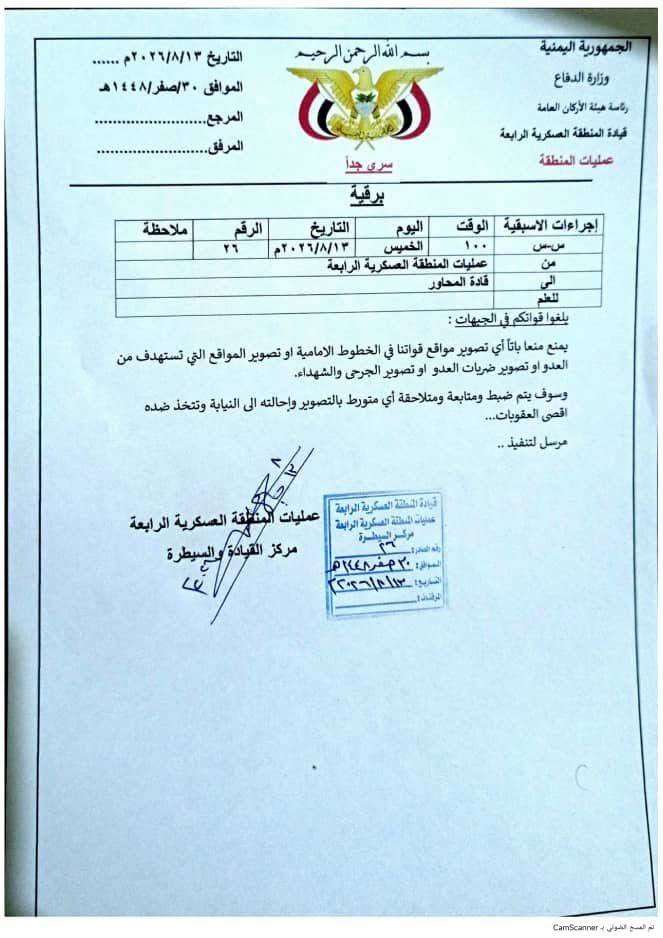 الجمهورية اليمنية
وزارة الدفاع
رئاسة هيئة الأركان العامة
قيادة المنطقة العسكرية الرابعة
عمليات المنطقة
بسم الله الرحمن الرحيم
سري جداً
التاريخ ٢٠٢٦/٨/١٣م ......
الموافق ٣٠/صفر/١٤٤٨هـ
المرجع........................
المرفق........................
برقية
إجراءات الاسبقية الوقت اليوم التاريخ الرقم ملاحظة
س-س ١٠٠ الخميس ٢٠٢٦/٨/١٣م ٢٦
من عمليات المنطقة العسكرية الرابعة
الى قادة المحاور
للعلم
بلغوا قواتكم في الجبهات :
يمنع منعا باتاً أي تصوير مواقع قواتنا في الخطوط الامامية او تصوير المواقع التي تستهدف من
العدو او تصوير ضربات العدو او تصوير الجرحى والشهداء.
وسوف يتم ضبط ومتابعة ومتلاحقة أي متورط بالتصوير وإحالته الى النيابة وتتخذ ضده
اقصى العقوبات...
مرسل لتنفيذ ..
عمليات المنطقة العسكرية الرابعة
مركز القيادة والسيطرة
قيادة المنطقة العسكرية الرابعة
عمليات المنطقة العسكرية الرابعة
مركز السيطرة
رقم الصادر: ٢٦
الموافق: ٣٠ صفر ١٤٤٨هـ
التاريخ: ٢٠٢٦/٨/١٣م
المرفقات:
تم المسح الضوئي بـ CamScanner